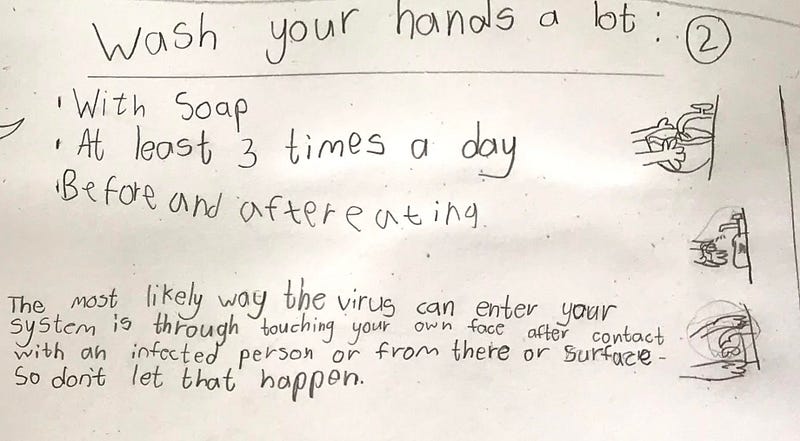 Wash your hands a lot: 2
' With Soap
' At least 3 times a day
' Before and after eating
The most likely way the virus can enter your
system is through touching your own face after contact
with an infected person or from there or surface-
So don't let that happen.